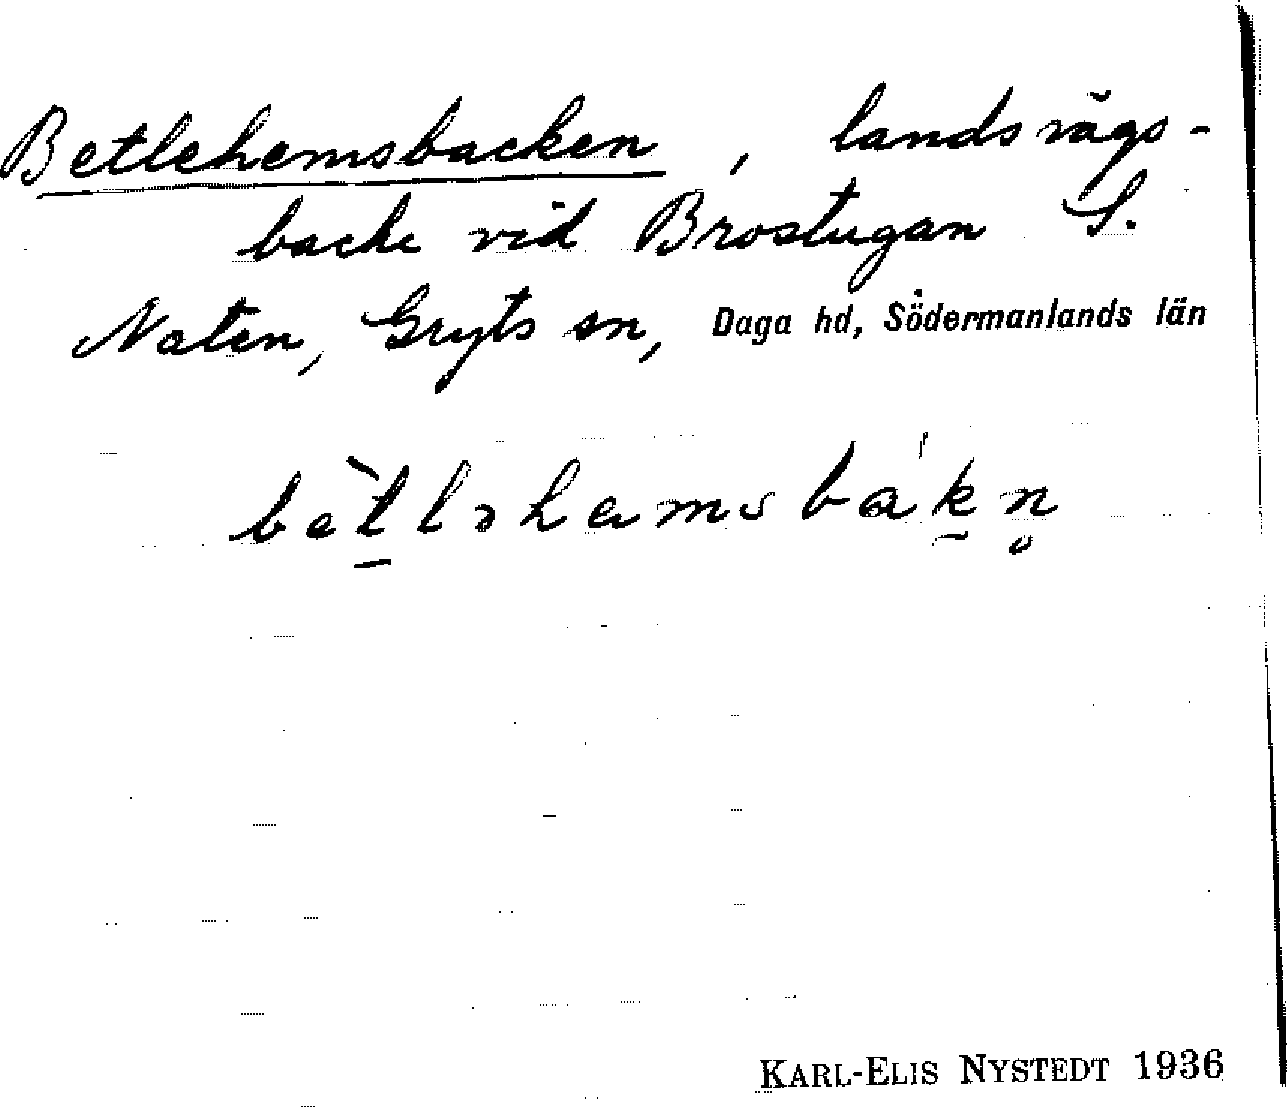 Betlehemsbacken, landsvägs-
backe vid Brostugan S.
Naten, Gryts sn, Daga hd, Södermanlands län
bèt̲ləhemsbák̰n̥
KARL-ELIS NYSTEDT 1936